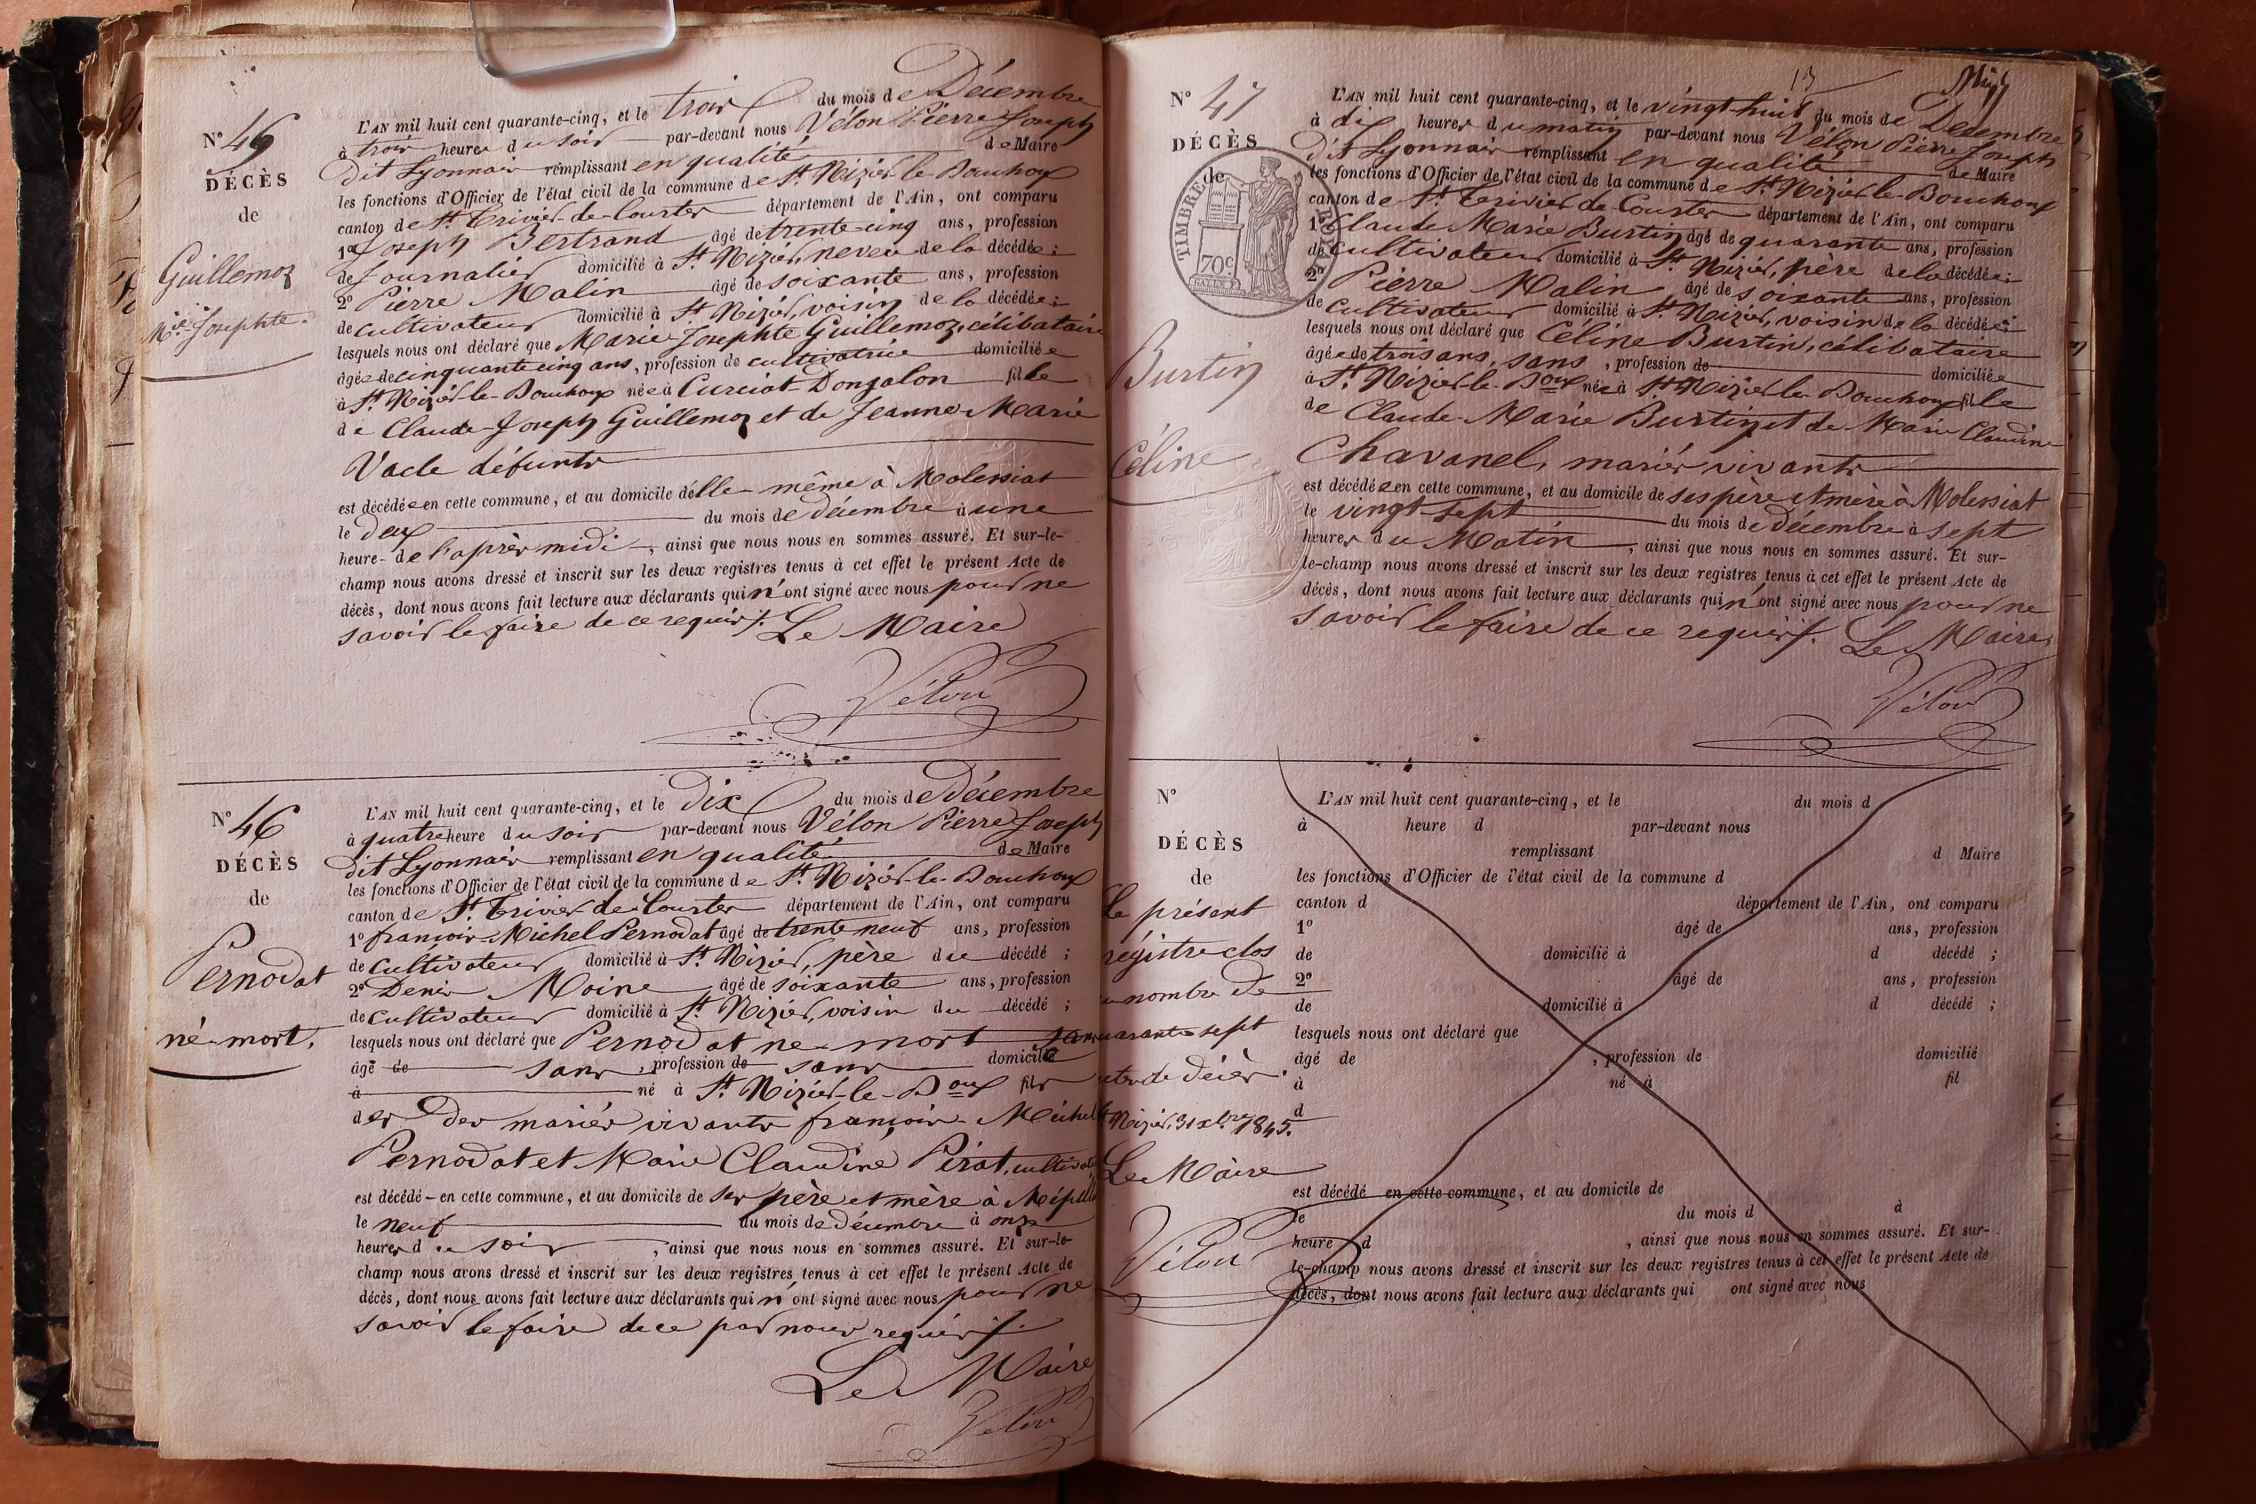 N° 45
DÉCÈS
de
Guillemoz
Mie Josephte.
L'AN mil huit cent quarante-cinq, et le trois du mois de Décembre
à trois heures du soir par-devant nous Vélon Pierre Joseph
dit Lyonnais remplissant en qualité de Maire
les fonctions d'Officier de l'état civil de la commune de St. Nizier-le-Bouchoux
canton de St. Trivier-de-Courtes département de l'Ain, ont comparu
1° Joseph Bertrand âgé de trente-cinq ans, profession
de Journalier domicilié à St. Nizier, neveu de la décédée;
2° Pierre Malin âgé de soixante ans, profession
de cultivateur domicilié à St. Nizier, voisin de la décédée;
lesquels nous ont déclaré que Marie Josephte Guillemoz, célibataire
âgée de cinquante cinq ans, profession de cultivatrice domiciliée
à St. Nizier-le-Bouchoux née à Curciat Dongalon fille
de Claude-Joseph Guillemoz et de Jeanne-Marie
Vacle défunts
est décédée en cette commune, et au domicile d'elle-même à Molessiat
le deux du mois de décembre à une
heure de l'après midi, ainsi que nous nous en sommes assuré. Et sur-le-
champ nous avons dressé et inscrit sur les deux registres tenus à cet effet le présent Acte de
décès, dont nous avons fait lecture aux déclarants qui n'ont signé avec nous pour ne
savoir le faire de ce requis. Le Maire
Vélon
N° 46
DÉCÈS
de
Pernodat
né-mort.
L'AN mil huit cent quarante-cinq, et le dix du mois de décembre
à quatre heure du soir par-devant nous Vélon Pierre Joseph
dit Lyonnais remplissant en qualité de Maire
les fonctions d'Officier de l'état civil de la commune de St. Nizier-le-Bouchoux
canton de St. Trivier-de-Courtes département de l'Ain, ont comparu
1° françois-Michel Pernodat âgé de trente neuf ans, profession
de cultivateur domicilié à St. Nizier, père du décédé;
2° Denis Moine âgé de soixante ans, profession
de cultivateur domicilié à St. Nizier, voisin du décédé;
lesquels nous ont déclaré que Pernodat né-mort sans
âgé de sans, profession de sans domicilié
à né à St. Nizier-le-Boux fils
des des mariés vivants françois-Michel
Pernodat et Marie Claudine Pirat, cultivat
est décédé en cette commune, et au domicile de ses père et mère à
le neuf du mois de décembre à onze
heures du soir, ainsi que nous nous en sommes assuré. Et sur-le-
champ nous avons dressé et inscrit sur les deux registres tenus à cet effet le présent Acte de
décès, dont nous avons fait lecture aux déclarants qui n'ont signé avec nous pour ne
savoir le faire de ce par nous requis.
Le Maire
Vélon
13
N° 47
DÉCÈS
de
TIMBRE ROYAL
70c
Burtin
Céline
L'AN mil huit cent quarante-cinq, et le vingt-huit du mois de Décembre
à dix heures du matin par-devant nous Vélon Pierre Joseph
dit Lyonnais remplissant en qualité de Maire
les fonctions d'Officier de l'état civil de la commune de St. Nizier-le-Bouchoux
canton de St. Trivier de Courtes département de l'Ain, ont comparu
1° Claude Marie Burtin âgé de quarante ans, profession
de cultivateur domicilié à St. Nizier, père de la décédée;
2° Pierre Malin âgé de soixante ans, profession
de cultivateur domicilié à St. Nizier, voisin de la décédée;
lesquels nous ont déclaré que Céline Burtin, célibataire
âgée de trois ans, sans, profession de domiciliée
à St. Nizier-le-Boux née à St. Nizier-le-Bouchoux fille
de Claude-Marie Burtin et de Marie Claudine
Chavanel, mariés vivants
est décédée en cette commune, et au domicile de ses père et mère à Molessiat
le vingt-sept du mois de décembre à sept
heures du Matin, ainsi que nous nous en sommes assuré. Et sur-
le-champ nous avons dressé et inscrit sur les deux registres tenus à cet effet le présent Acte de
décès, dont nous avons fait lecture aux déclarants qui n'ont signé avec nous pour ne
savoir le faire de ce requis. Le Maire
Vélon
N°
DÉCÈS
de
Le présent
régistre clos
au nombre de
quarante-sept
actes de décès.
St Nizier, 31 xbre 1845.
Le Maire
Vélon
L'AN mil huit cent quarante-cinq, et le du mois d
à heure d par-devant nous
remplissant d Maire
les fonctions d'Officier de l'état civil de la commune d
canton d département de l'Ain, ont comparu
1° âgé de ans, profession
de domicilié à d décédé;
2° âgé de ans, profession
de domicilié à d décédé;
lesquels nous ont déclaré que
âgé de , profession de domicilié
à né à fil
d
est décédé en cette commune, et au domicile de
le du mois d à
heure d , ainsi que nous nous en sommes assuré. Et sur-
le-champ nous avons dressé et inscrit sur les deux registres tenus à cet effet le présent Acte de
décès, dont nous avons fait lecture aux déclarants qui ont signé avec nous